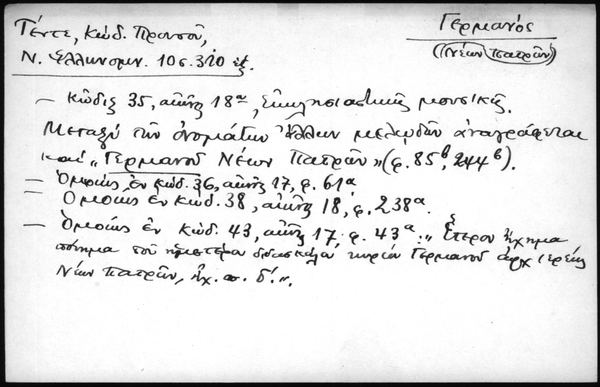 Τέντε, Κώδ. Προυσοῦ,
Ν. Ἑλληνομν. 10 σ. 310 ἑξ.
Γερμανός
(Νέων Πατρῶν)
— Κῶδιξ 35, αἰῶνος 18ου, Ἐκκλησιαστικῆς μουσικῆς.
Μεταξὺ τῶν ὀνομάτων ἄλλων μελῳδῶν ἀναγράφεται
καὶ "Γερμανοῦ Νέων Πατρῶν" (φ. 85β, 244β).
— Ὁμοίως ἐν κώδ. 36, αἰῶνος 17, φ. 61α
— Ὁμοίως ἐν κώδ. 38, αἰῶνος 18, φ. 238α.
— Ὁμοίως ἐν κώδ. 43, αἰῶνος 17, φ. 43α: "Ἕτερον ἤχημα
ποίημα τοῦ ἡμετέρου διδασκάλου κυρίου Γερμανοῦ ἀρχιερέως
Νέων Πατρῶν, ἦχ. π. δ΄".